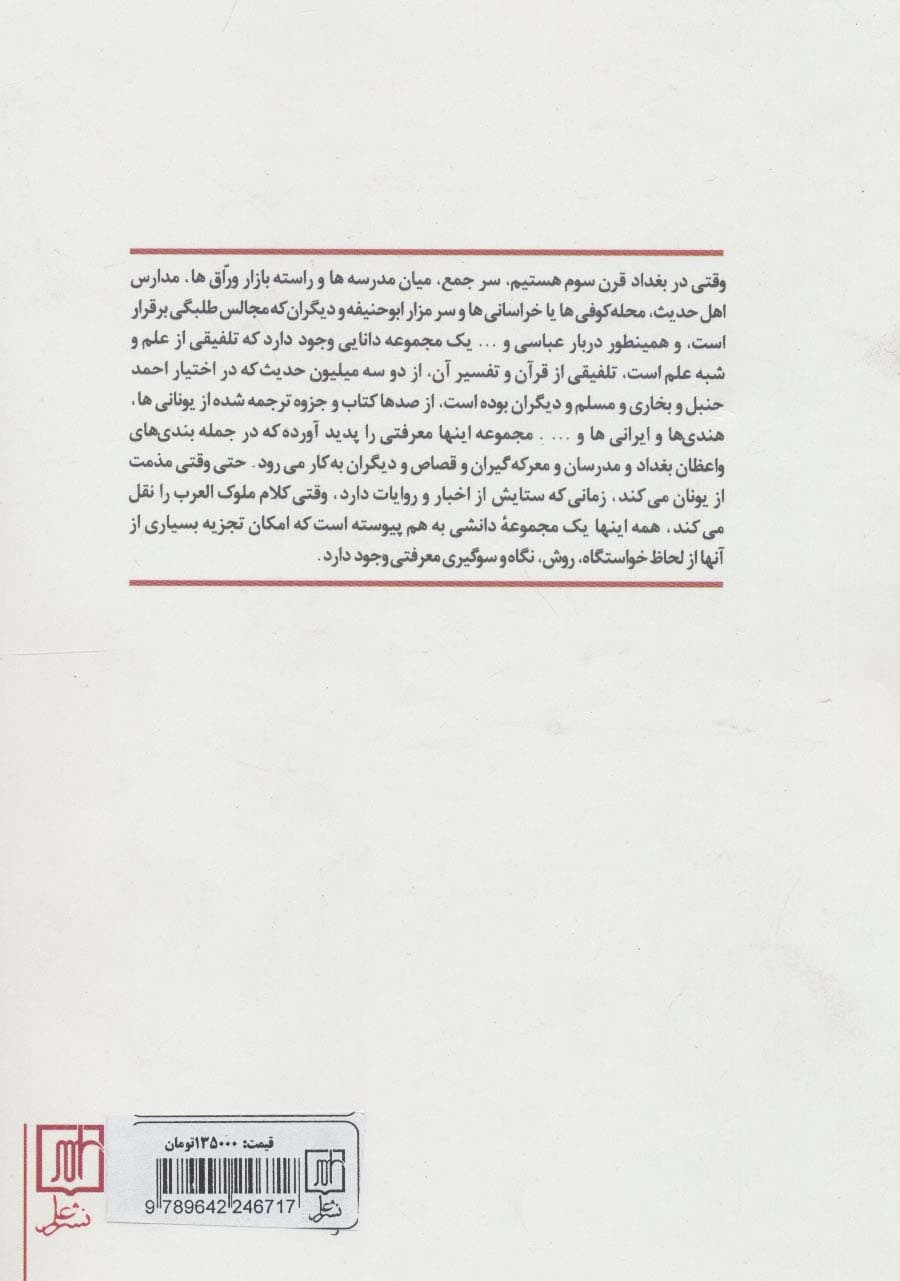 وقتی در بغداد قرن سوم هستیم، سر جمع، میان مدرسه ها و راسته بازار ورّاق ها، مدارس
اهل حدیث، محله کوفی ها یا خراسانی ها و سر مزار ابوحنیفه و دیگران که مجالس طلبگی برقرار
است، و همینطور دربار عباسی و ... یک مجموعه دانایی وجود دارد که تلفیقی از علم و
شبه علم است، تلفیقی از قرآن و تفسیر آن، از دو سه میلیون حدیث که در اختیار احمد
حنبل و بخاری و مسلم و دیگران بوده است، از صدها کتاب و جزوه ترجمه شده از یونانی ها،
هندی‌ها و ایرانی ها و ... . مجموعه اینها معرفتی را پدید آورده که در جمله بندی‌های
واعظان بغداد و مدرسان و معرکه گیران و قصاص و دیگران به کار می رود. حتی وقتی مذمت
از یونان می کند، زمانی که ستایش از اخبار و روایات دارد، وقتی کلام ملوک العرب را نقل
می کند، همه اینها یک مجموعهٔ دانشی به هم پیوسته است که امکان تجزیه بسیاری از
آنها از لحاظ خواستگاه، روش، نگاه و سوگیری معرفتی وجود دارد.
قیمت: ۱۳۵۰۰۰تومان
9 789642 246717
نشر علم
نشر علم